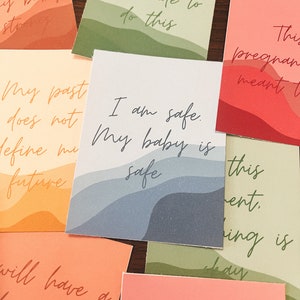 strong
do this
This
pregnan
meant
My past
does not
define my
future
I am safe.
My baby is
safe
this
ment,
thing is
okay
will have a